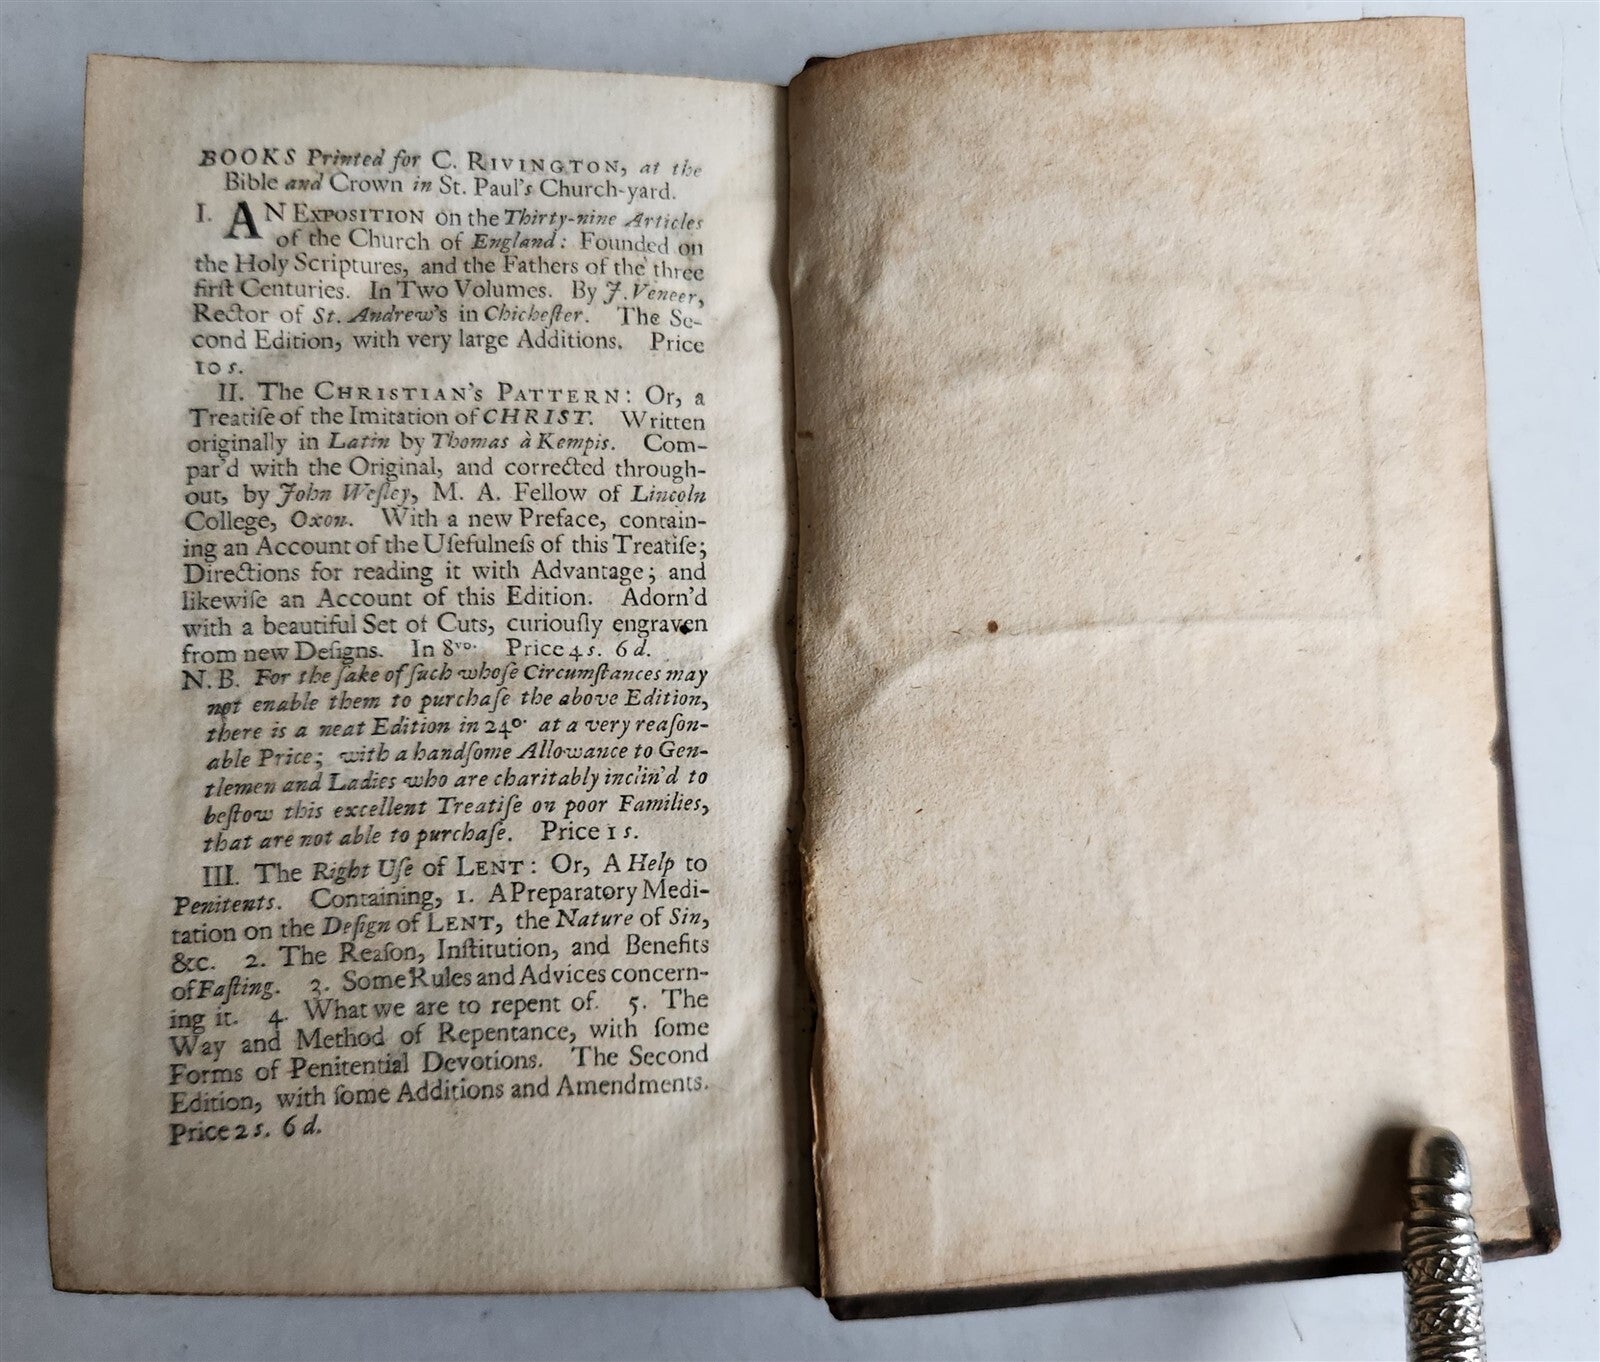 BOOKS Printed for C. RIVINGTON, at the
Bible and Crown in St. Paul's Church-yard.
I. AN EXPOSITION on the Thirty-nine Articles
of the Church of England: Founded on
the Holy Scriptures, and the Fathers of the three
firſt Centuries. In Two Volumes. By J. Veneer,
Rector of St. Andrew's in Chicheſter. The Se-
cond Edition, with very large Additions. Price
10 s.
II. The CHRISTIAN's PATTERN: Or, a
Treatiſe of the Imitation of CHRIST. Written
originally in Latin by Thomas à Kempis. Com-
par'd with the Original, and corrected through-
out, by John Weſley, M. A. Fellow of Lincoln
College, Oxon. With a new Preface, contain-
ing an Account of the Uſefulneſs of this Treatiſe;
Directions for reading it with Advantage; and
likewiſe an Account of this Edition. Adorn'd
with a beautiful Set of Cuts, curiouſly engraven
from new Deſigns. In 8vo. Price 4 s. 6 d.
N. B. For the ſake of ſuch whoſe Circumſtances may
not enable them to purchaſe the above Edition,
there is a neat Edition in 24o. at a very reaſon-
able Price; with a handſome Allowance to Gen-
tlemen and Ladies who are charitably inclin'd to
beſtow this excellent Treatiſe on poor Families,
that are not able to purchaſe. Price 1 s.
III. The Right Uſe of LENT: Or, A Help to
Penitents. Containing, 1. A Preparatory Medi-
tation on the Deſign of LENT, the Nature of Sin,
&c. 2. The Reaſon, Inſtitution, and Benefits
of Faſting. 3. Some Rules and Advices concern-
ing it. 4. What we are to repent of. 5. The
Way and Method of Repentance, with ſome
Forms of Penitential Devotions. The Second
Edition, with ſome Additions and Amendments.
Price 2 s. 6 d.